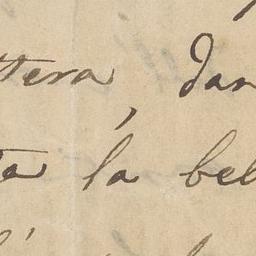 ttera, dan
ta la bel